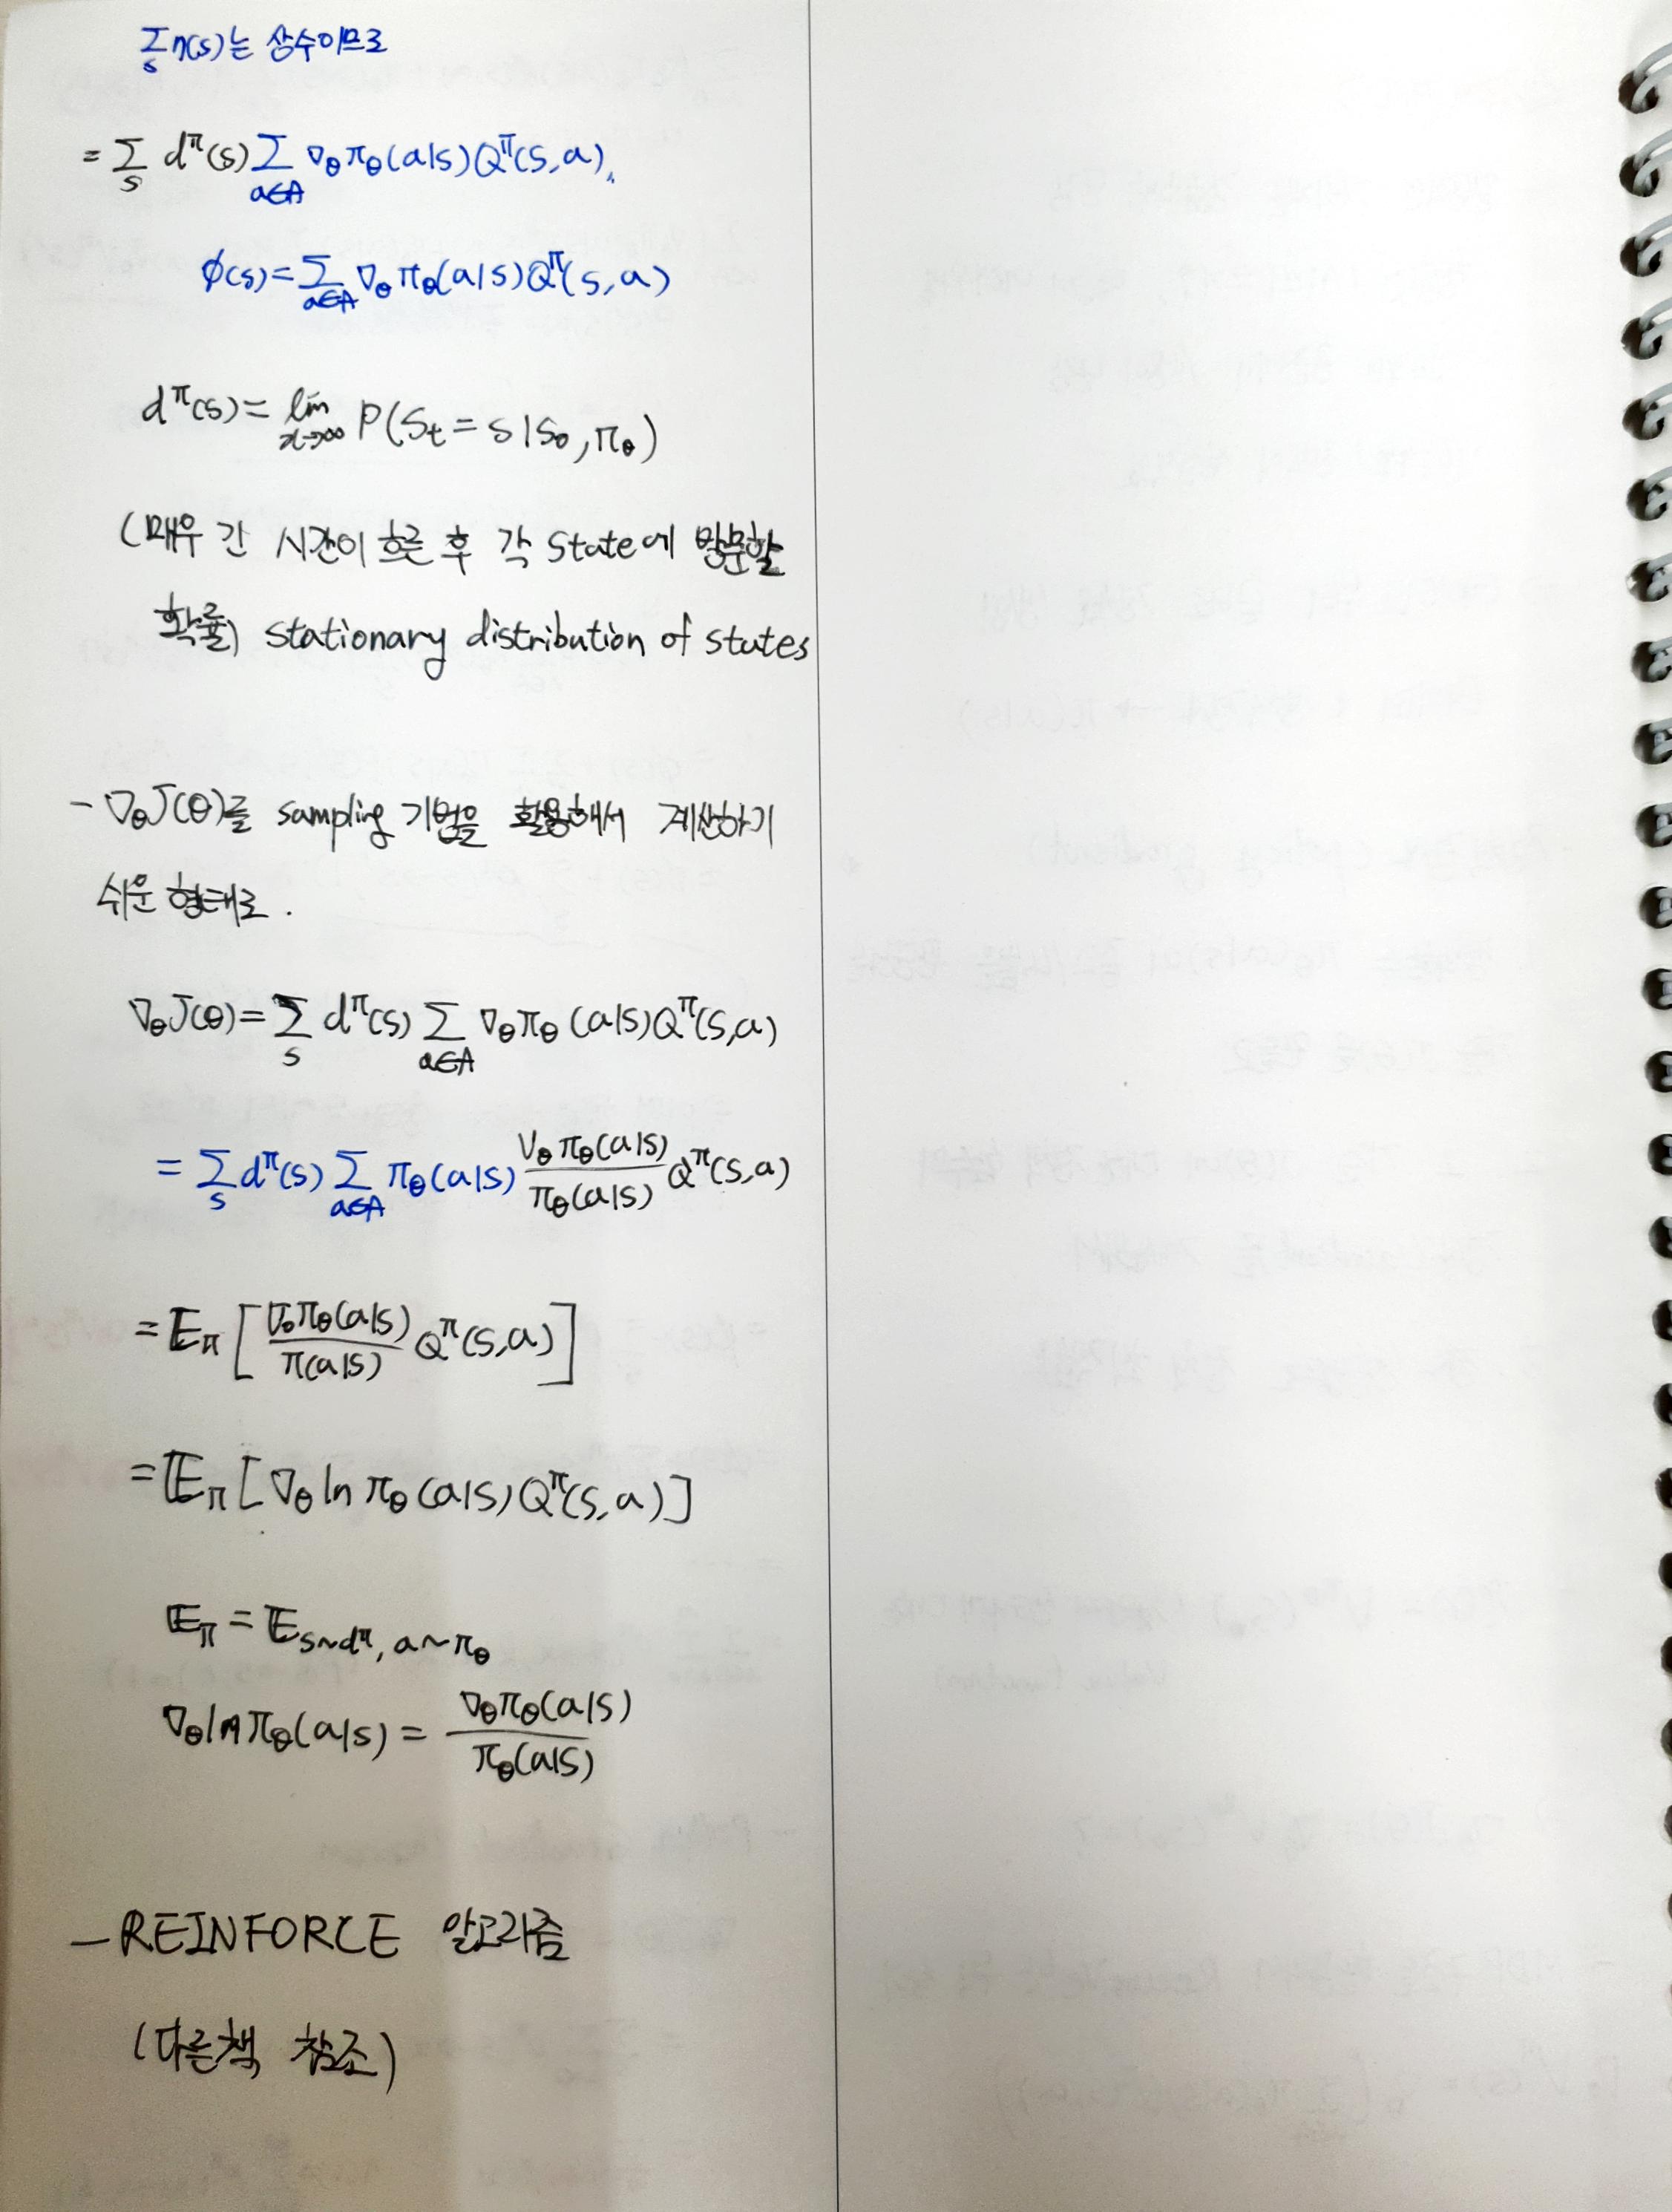 Σ_s η(s)는 상수이므로
= Σ_s d^π(s) Σ_{a∈A} ∇_θ π_θ(a|s) Q^π(s,a)
φ(s) = Σ_{a∈A} ∇_θ π_θ(a|s) Q^π(s,a)
d^π(s) = lim_{t→∞} P(S_t = s | s_0, π_θ)
(매우 긴 시간이 흐른 후 각 state에 방문할
확률) stationary distribution of states
- ∇_θ J(θ)를 sampling 기법을 활용해서 계산하기
쉬운 형태로.
∇_θ J(θ) = Σ_s d^π(s) Σ_{a∈A} ∇_θ π_θ (a|s) Q^π(s,a)
= Σ_s d^π(s) Σ_{a∈A} π_θ(a|s) ∇_θ π_θ(a|s) / π_θ(a|s) Q^π(s,a)
= E_π [ ∇_θ π_θ(a|s) / π(a|s) Q^π(s,a) ]
= E_π [ ∇_θ ln π_θ (a|s) Q^π(s,a) ]
E_π = E_{s~d^π, a~π_θ}
∇_θ ln π_θ(a|s) = ∇_θ π_θ(a|s) / π_θ(a|s)
- REINFORCE 알고리즘
(다른책 참조)